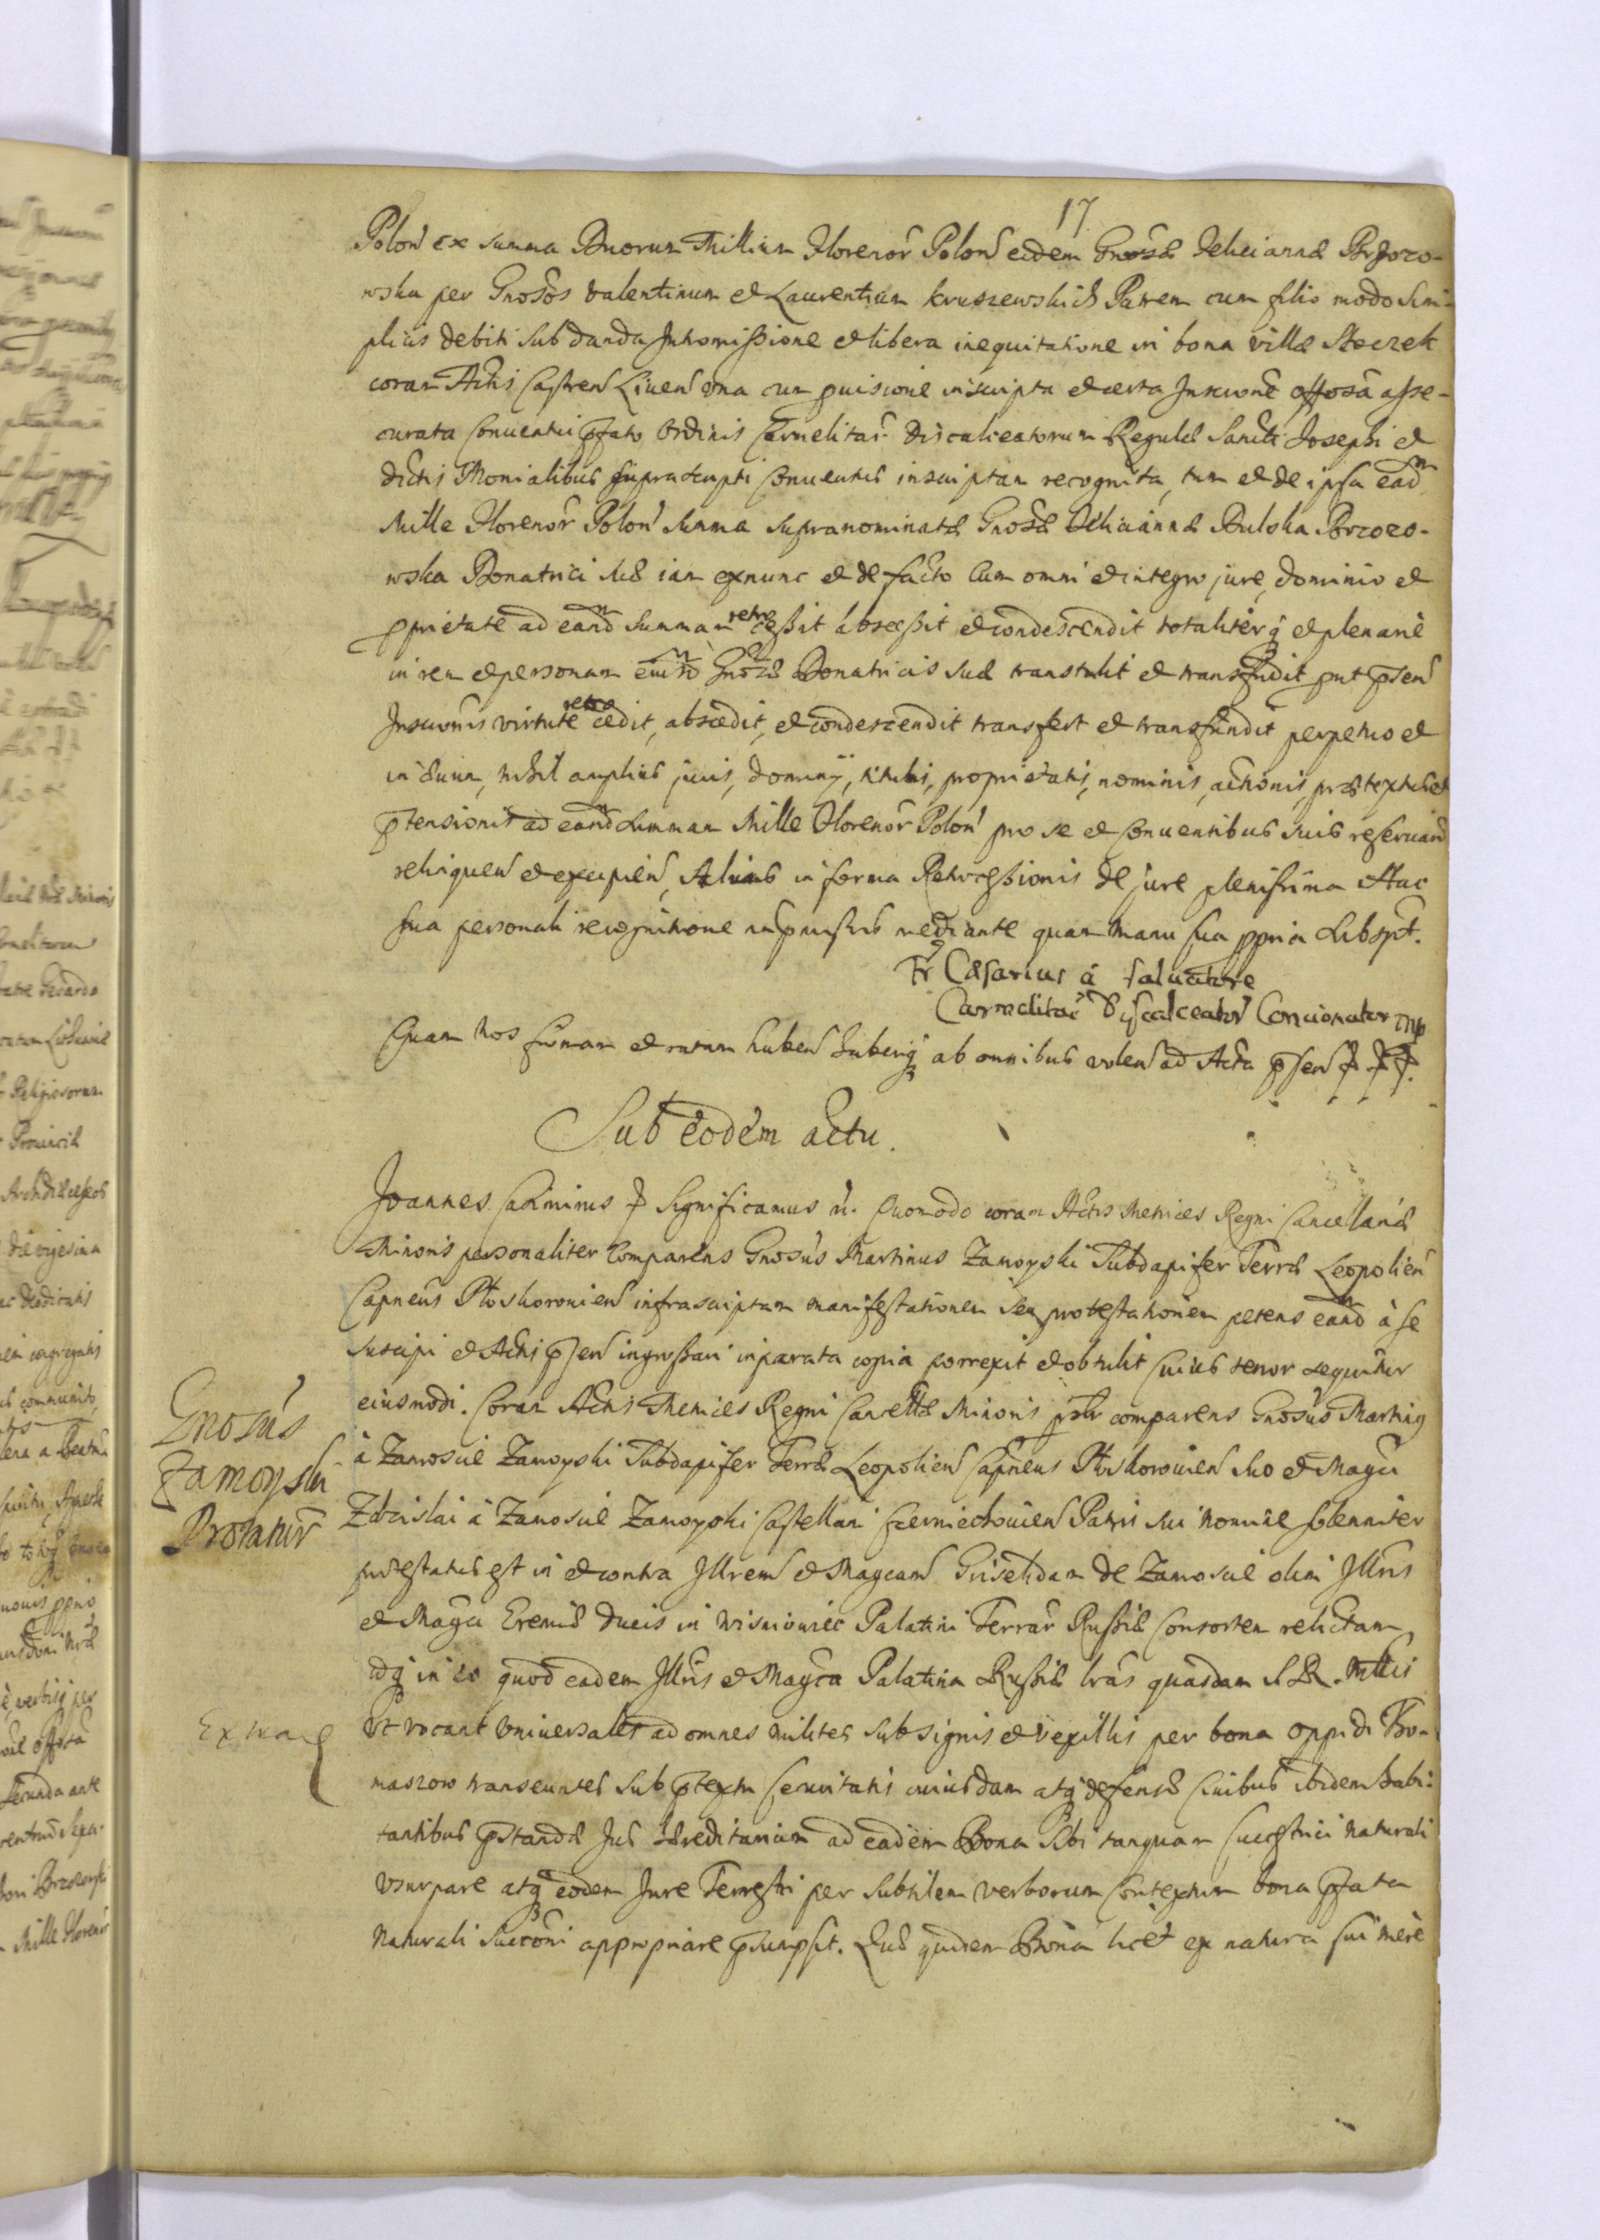 17
Polon̄ ex summa Duorum Millium Florenor̄ Polon̄ eidem Gnosæ Feliciannæ Brzozo-
wska per Gnosos Valentinum et Laurentium Kruszewskich Patrem cum filio modo sim-
plicis debiti sub danda Intromissione et libera inequitatione in bona villæ Stoczek
coram Actis Castren̄ Liuen̄ una cum inscripta et certa Inscrione offosa asse-
curata Conuentui pfato Ordinis Carmelitar̄ Discalceatorum Regulæ Sancti Josephi et
dictis Monialibus suprascripti Conuentus inscriptam recognita, tum et de ipsa ead̄
Mille Florenor̄ Polon̄ summa supranominatæ Gnosæ Feliciannæ Brzozo-
wska Donatrici suæ iam exnunc et de facto cum omni et integro jure, dominio et
pprietate ad eand̄ summam retrocessit abscessit et condescendit totaliterq̄ et plenarie
in rem et personam eiusd̄ Gnosæ Donatricis suæ transtulit et transfudit put psen̄
Inscriōnis virtute retrocedit, abscedit, et condescendit transfert et transfundit perpetuo et
in æuum, nihil amplius juris, dominij, tituli, proprietatis, nominis, actionis, prætextus et
ptensionis ad eand̄ summam Mille Florenor̄ Polon̄ pro se et Conuentibus suis reseruand̄
relinquen̄ et excipien̄, Saluis in forma Retrocessionis de jure plenissima Hac
sua personali recognitione mediante quam manu sua ppria subspt̄.
Fr Cæsarius à Saluatore
Carmelitar̄ Discalceator̄ Concionator mp
Quam nos firmam et ratam haben̄ haberiq̄ ab omnibus volen̄ ad Acta psen̄
Sub eodem actu.
Joannes Casimirus Significamus Quomodo coram Actis Metrices Regni Cancellariæ
Minoris personaliter comparens Gnosus Martinus Zamoyski Subdapifer Terræ Leopolien̄
Capneus Ploskorouien̄ infrascriptam manifestationem seu protestationem petens eand̄ à se
suscipi et Actis psen̄ ingrossari in parata copia porrexit et obtulit Cuius tenor sequitur
eiusmodi. Coram Actis Metrices Regni Cancellæ Minoris psr̄ comparens Gnosus Martinus
à Zamoscie Zamoyski Subdapifer Terræ Leopolien̄ Capneus Ploskorouien̄ suo et Magci
Zdzislai à Zamoscie Zamoyski Castellani Czerniechouien̄ Patris sui nomine solenniter
protestatus est in et contra Jllrem et Magcam Griseldam de Zamoscie olim Jllris
et Magci Eremiæ Ducis in Wisniouiec Palatini Terrar̄ Russiæ Consortem relictam,
idq̄ in eo quod eadem Jllris et Magca Palatina Russiæ lras quasdam S. R. Mttis
Vt vocant Vniuersales ad omnes milites sub signis et vexillis per bona oppidi To-
maszow transeuntes sub ptextu seruitatis cuiusdam atq̄ defensæ Ciuibus ibidem habi-
tantibus pstandæ Jus hæreditarium ad eadem Bona sibi tanquam succestrici naturali
vsurpare atq̄ eodem Jure Terrestri per subtilem verborum contextum bona pfata
naturali succōni appropriare psumpsit. Quæ quidem Bona licet ex natura sui mere
Gnosus
Zamoyski
Protatur̄
Extrad